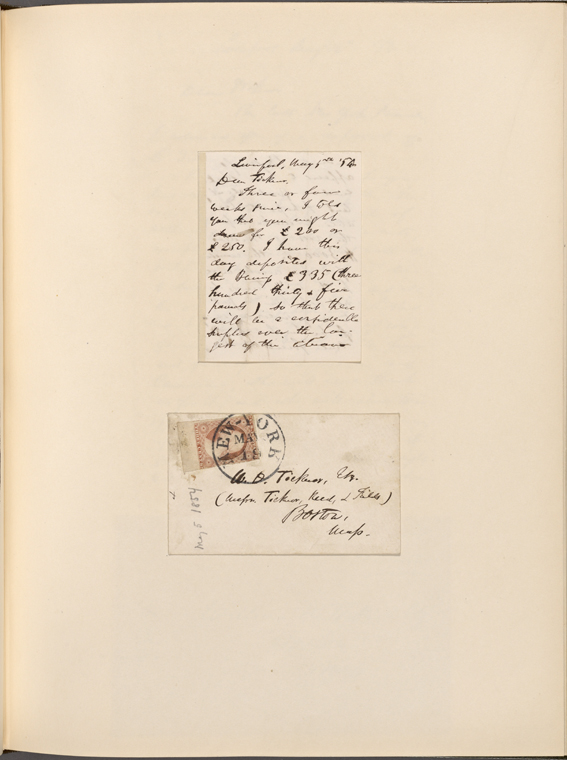 Liverpool, May 5th '54
Dear Ticknor,
Three or four
weeks since, I told
you that you might
draw for £200 or
£250. I have this
day deposited with
the Barings £335 (three
hundred thirty & five
pounds) so that there
will be a considerable
surplus over the lar-
gest of the above
NEW-YORK
MAY
18
W. D. Ticknor, Esq.
(Messrs Ticknor, Reed, & Fields)
Boston,
Mass.
May 5 1854